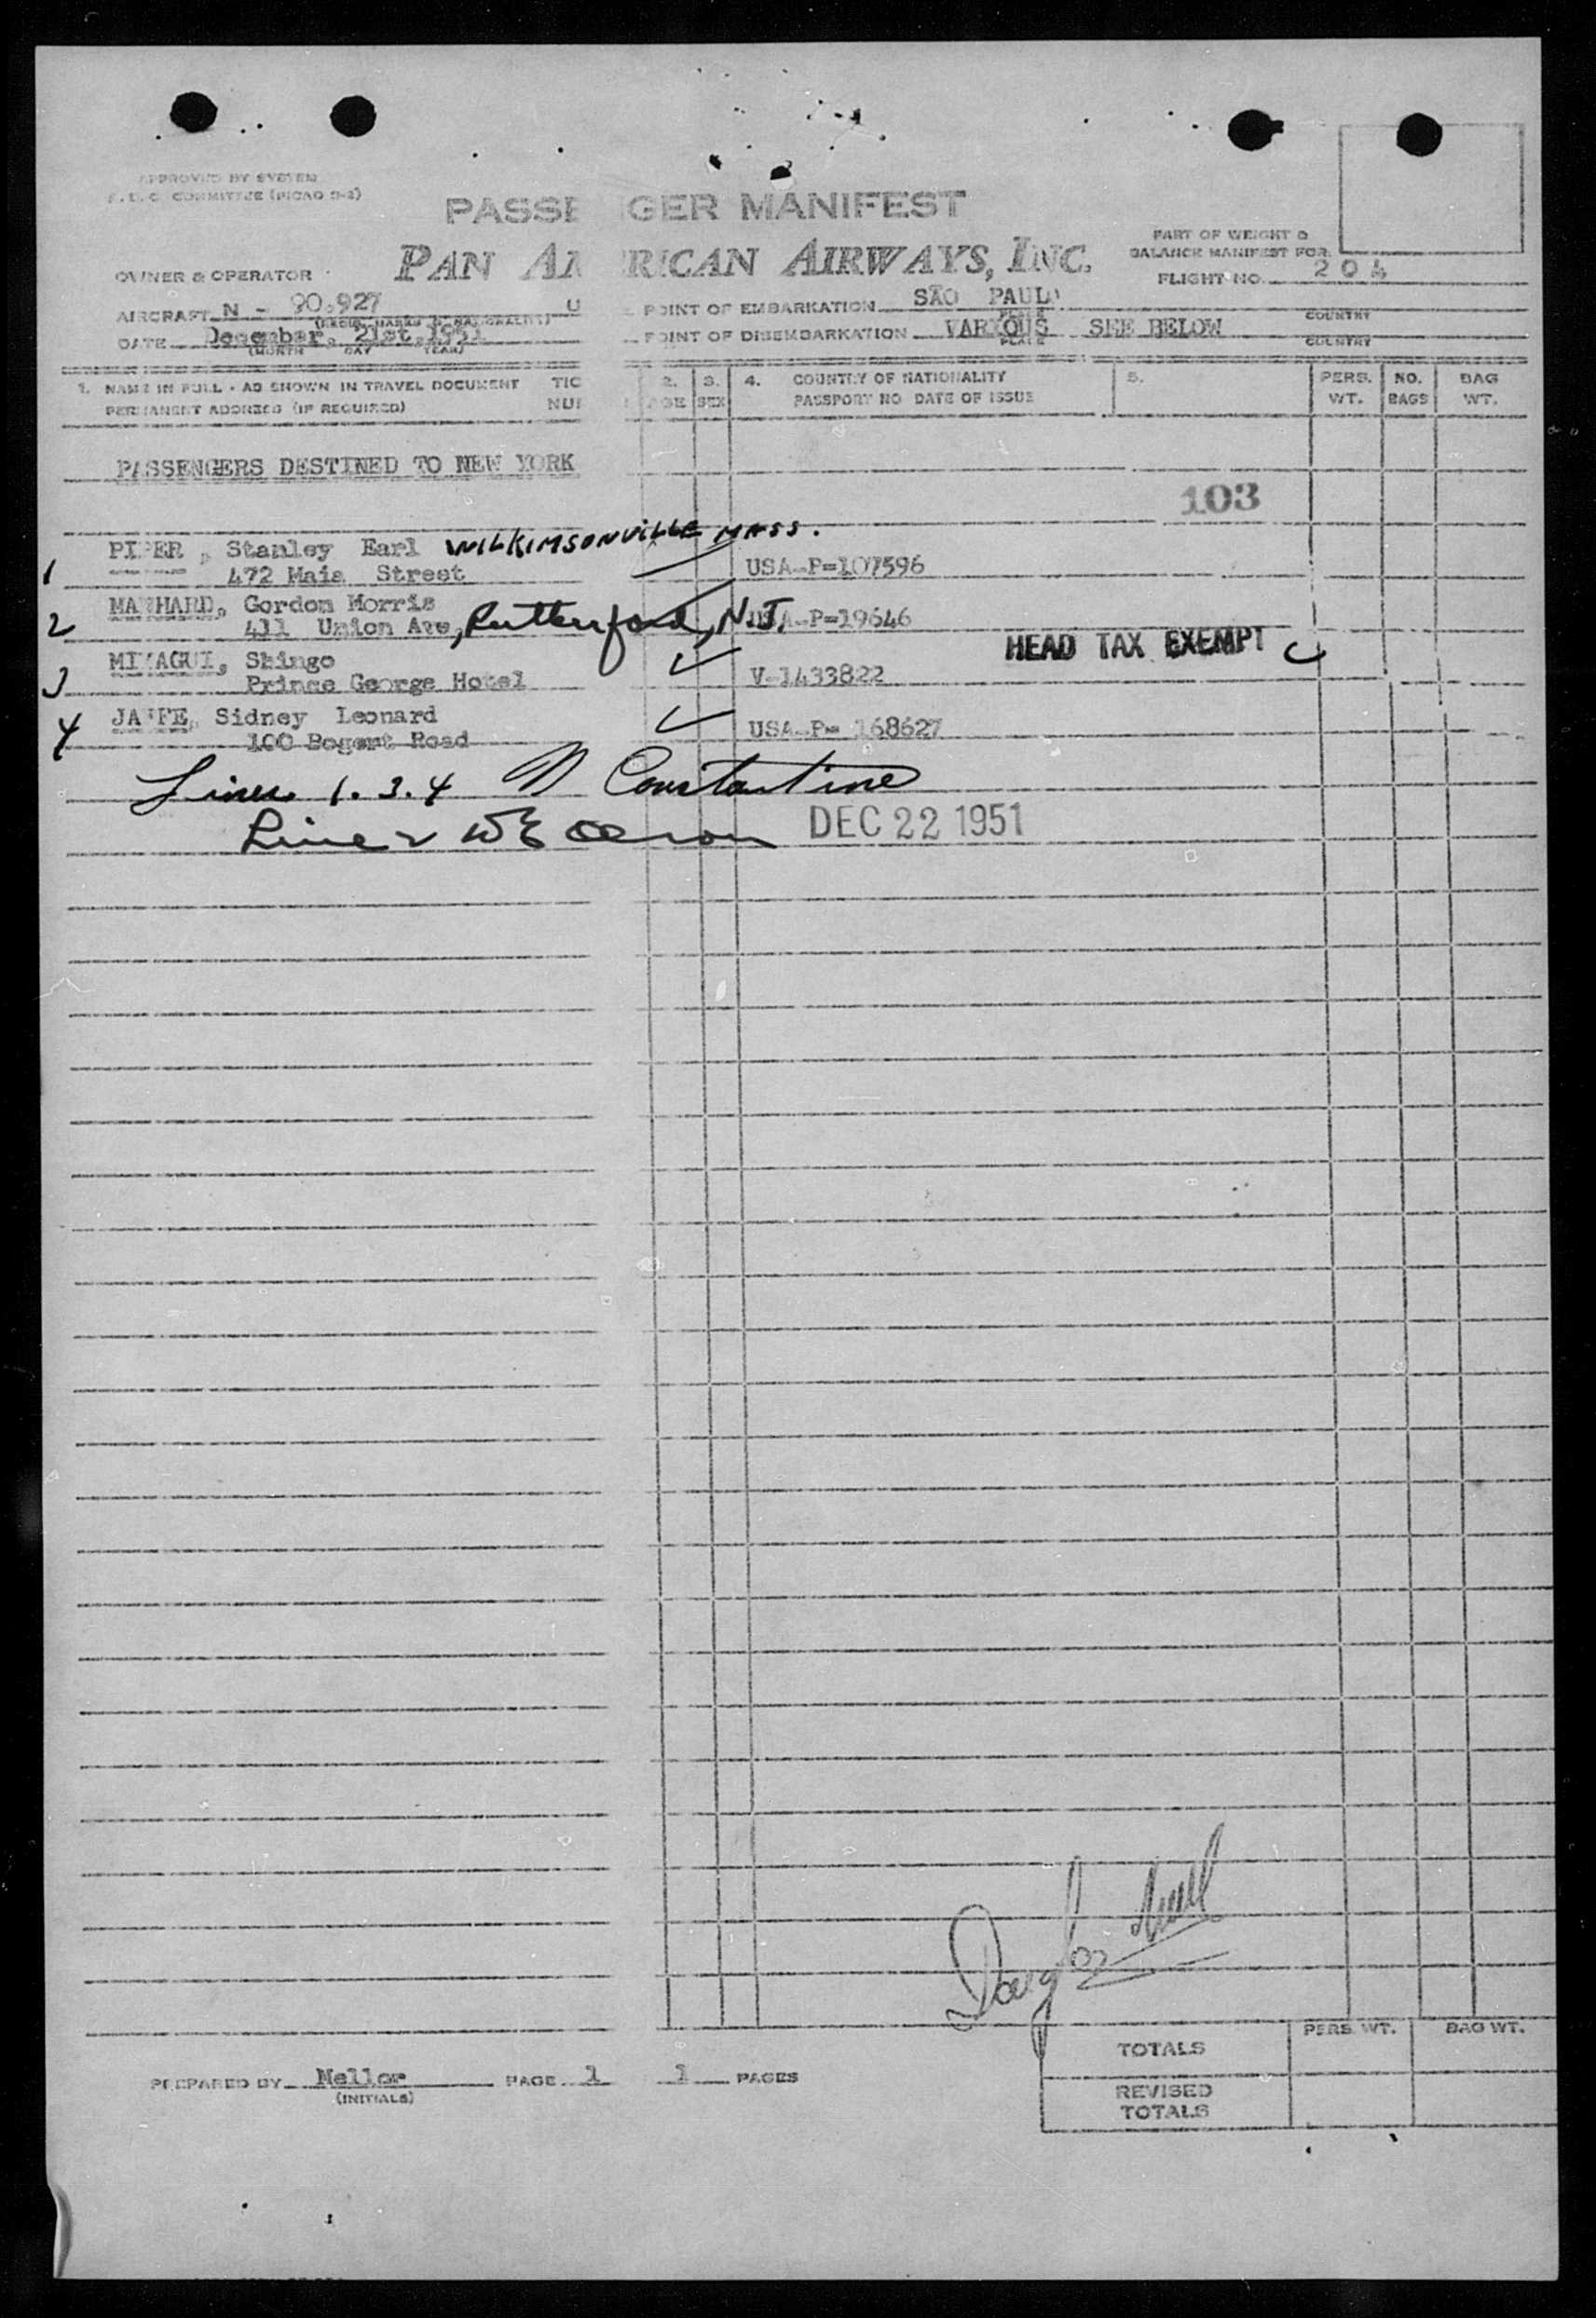 APPROVED BY SYSTEM
COMMITTEE (PICAO
PASSE GER MANIFEST
PAN A RICAN AIRWAYS, INC.
PART OF WEIGHT &
BALANCE MANIFEST FOR
FLIGHT NO. 204
OWNER & OPERATOR
AIRCRAFT N - 90.927 U
POINT OF EMBARKATION SÃO PAULO
PLACE COUNTRY
DATE December, 21st, 1951
(MONTH DAY YEAR)
POINT OF DISEMBARKATION VARIOUS SEE BELOW
PLACE COUNTRY
1. NAME IN FULL - AS SHOWN IN TRAVEL DOCUMENT TIC
PERMANENT ADDRESS (IF REQUIRED) NU
2. AGE
3. SEX
4. COUNTRY OF NATIONALITY
PASSPORT NO DATE OF ISSUE
5.
PERS. WT.
NO. BAGS
BAG WT.
PASSENGERS DESTINED TO NEW YORK
103
1 PIPER, Stanley Earl WILKIMSONVILLE MASS.
472 Main Street USA-P=107596
2 Gordon Morris
411 Union Ave, Rutherford, N.J. USA-P=19646
HEAD TAX EXEMPT
3 MIYAGUI, Shingo
Prince George Hotel V-1433822
4 JAFFE, Sidney Leonard
100 Bogert Road USA-P= 168627
Lines 1. 3. 4 Constantine
Line 2 DEC 22 1951
Douglas
TOTALS PERS. WT. BAG WT.
REVISED
TOTALS
PREPARED BY Mellor PAGE 1 1 PAGES
(INITIALS)